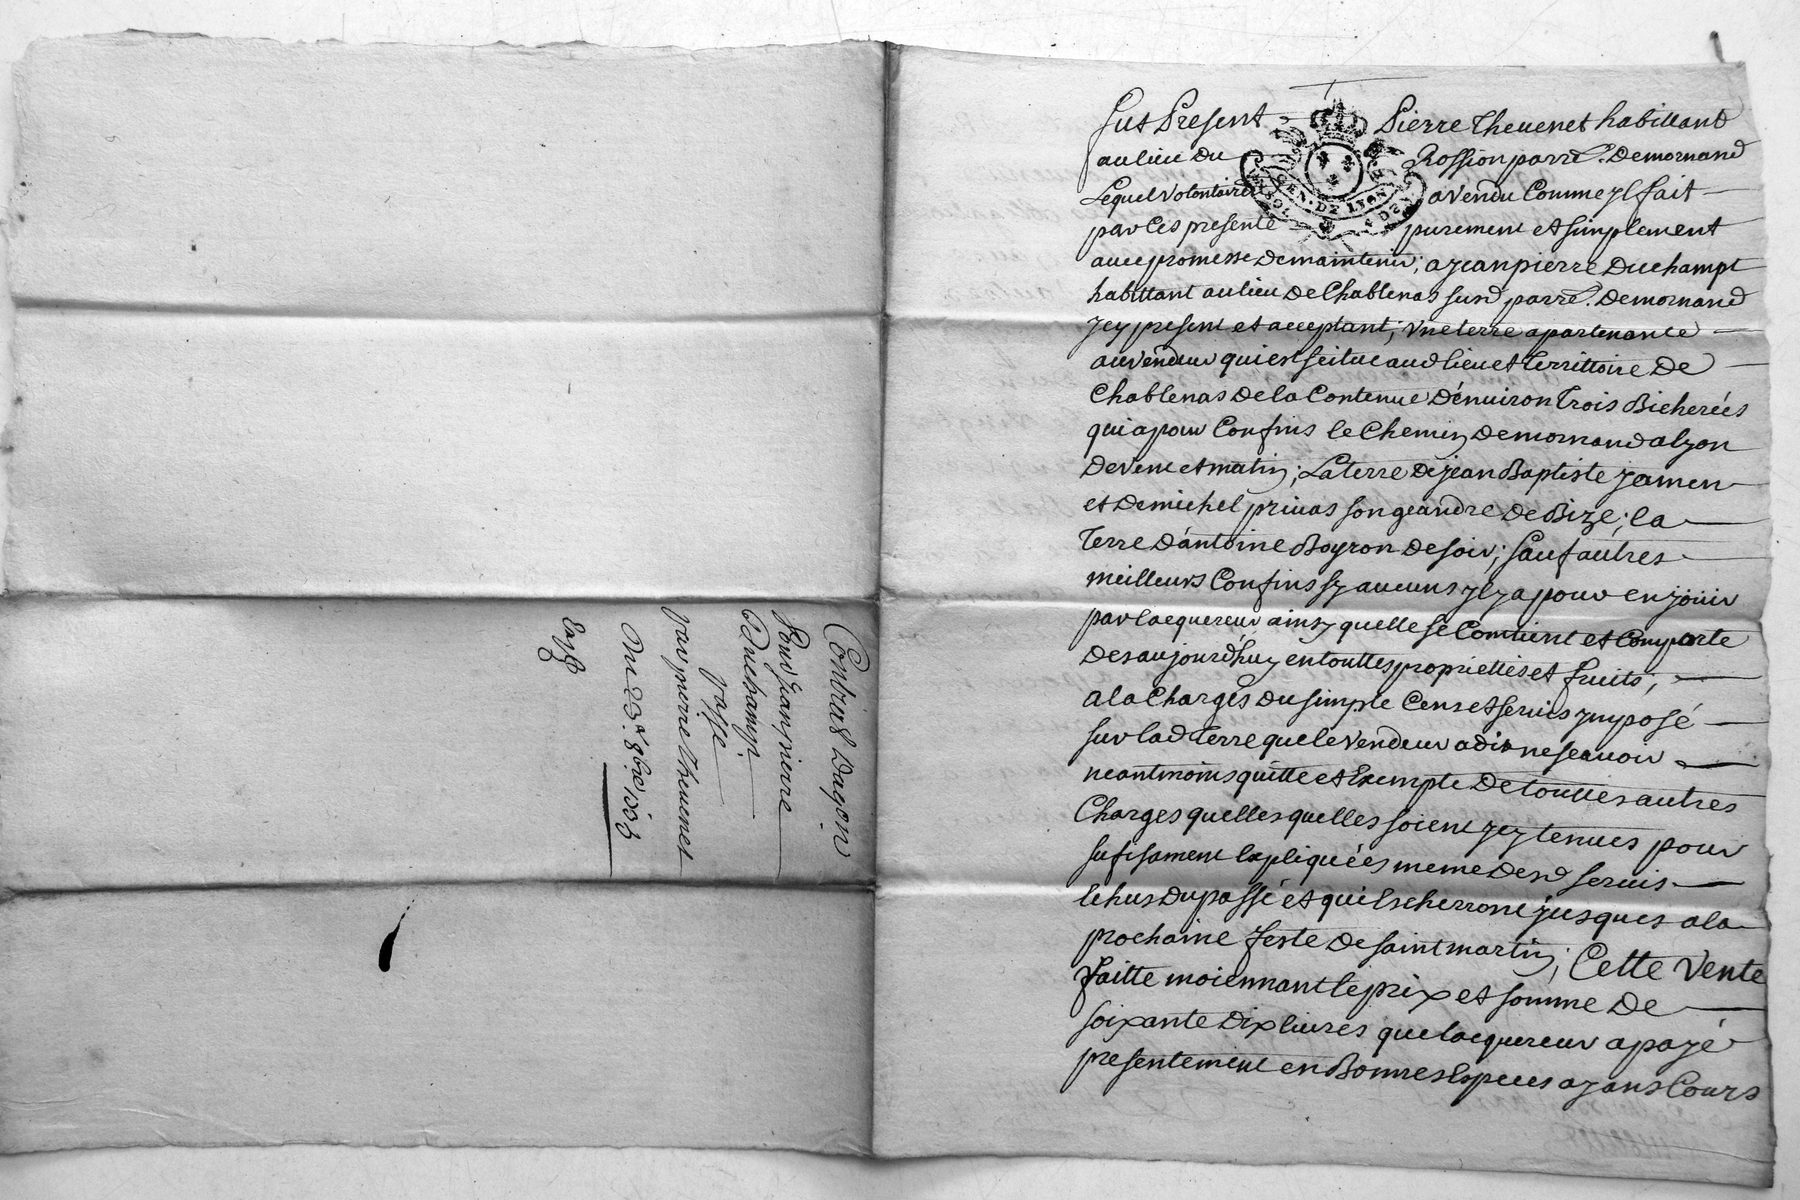 Contrat Daqon
Pour Jean pierre
Duchamp
passé
par pierre Thevenet
Du 23e 9bre
Exp
Fut Present Pierre Thevenet habittant
au lieu du Rossion parre. de mornand
Lequel volontairem a vendu Comme yl fait
par Ces presente purement et simplement
avec promesse de maintenir; a jean pierre Duchampt
habittant au lieu de Chablenas susd parre. de mornand
jcy present et acceptant; vne terre apartenante
au vendeur qui est scitue aud lieu et Territtoire De
Chablenas de la Contenue d'énuiron Trois Bicherées
qui a pour Confins le Chemin de mornand a lyon
de vent et matin; La terre de jean Baptiste jamen
et de michel priuas son geandre de Bize; la
Terre d'antoine Boyron de soir; sauf autres
meilleurs Confins sy aucuns yl y a pour en joüir
par lacquereur ainsy quelle se Contient et Comporte
des aujourd'huy en touttes proprietties et fruits;
a la Charges du simple Cens et seruis ymposé
sur lad Terre que le vendeur a dit ne scauoir
neantmoins quitte et Exempte De touttes autres
Charges quelles quelles soient jcy tenues pour
sufisament Expliquéés meme desd seruis
Echus du passé et quils cherront jusques a la
prochaine feste de saint martin; Cette vente
faitte moiennant le prix et somme De
soixante dix liures que lacquereur a payé
presentement en Bonnes Especes ayans Cours
GEN. DE LYON